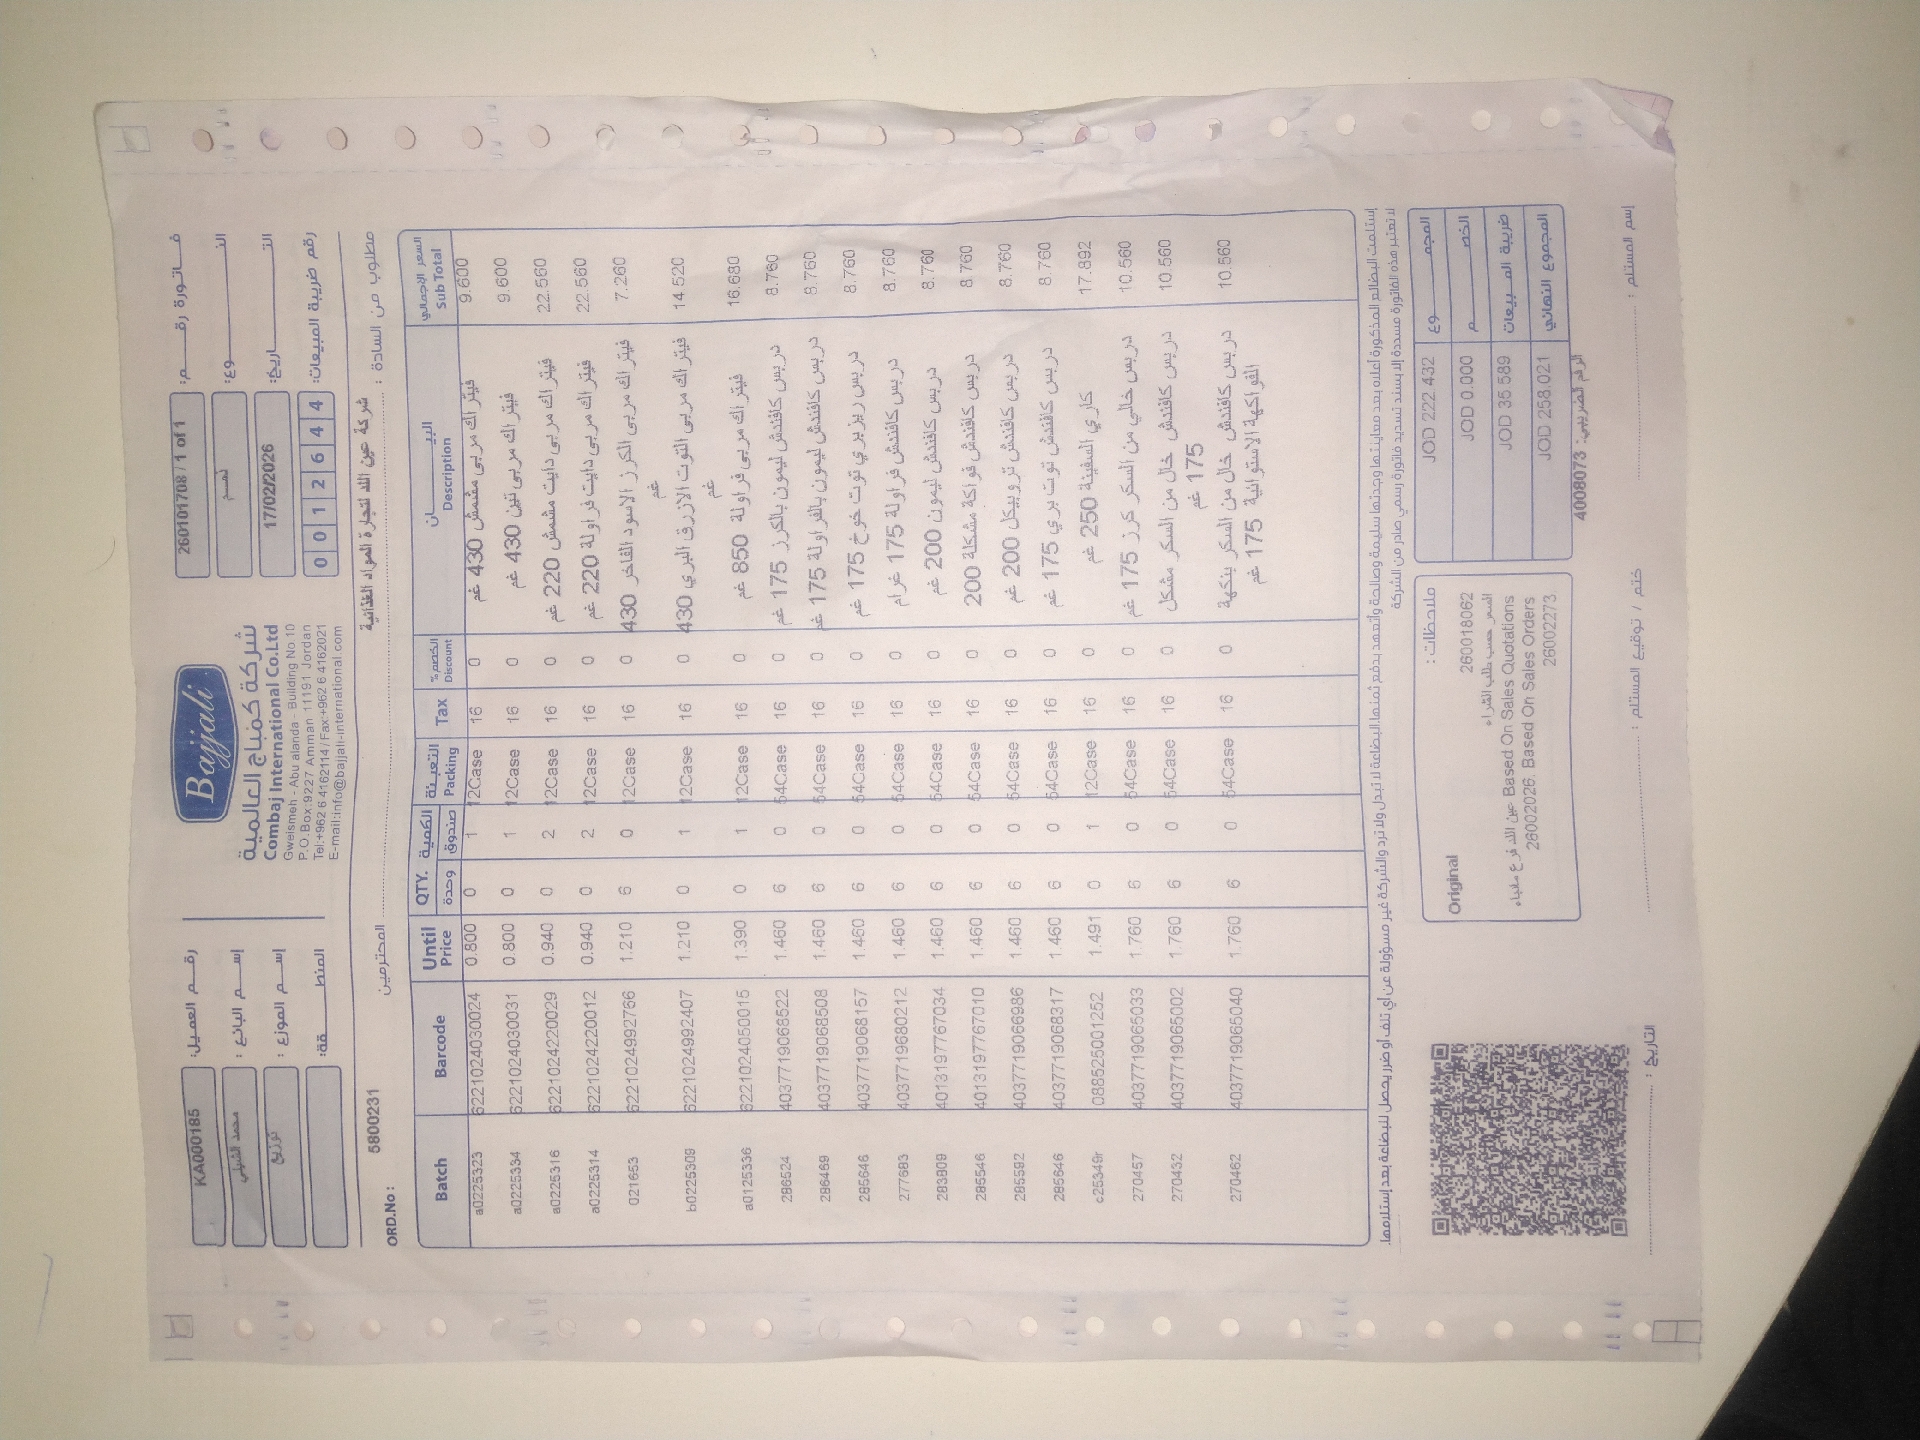 Bajjali
شركة كمباج العالمية
Combaj International Co.Ltd
Gweismeh - Abu alanda Building No 10
P.O.Box:9227 Amman 11191 Jordan
Tel:+962 6 4162114/Fax:+962 6 4162021
E-mail:info@bajjali-international.com
رقم العميل: KA000185
إسم البائع :
إسم الموزع : توزيع
المنطقة:
فاتورة رقم: 260101708 / 1 of 1
النوع:
التاريخ: 17/02/2026
رقم ضريبة المبيعات: 0 0 1 2 6 4 4
مطلوب من السادة : شركة عين الله لتجارة المواد الغذائية المحترمين
ORD.No : 5800231
Batch Barcode Until Price QTY. الكمية وحدة صندوق التعبئة Packing Tax الخصم% Discount البيان Description السعر الإجمالي Sub Total
a0225323 6221024030024 0.800 0 1 12Case 16 0 فيتراك مربى مشمش 430 غم 9.600
a0225334 6221024030031 0.800 0 1 12Case 16 0 فيتراك مربى تين 430 غم 9.600
a0225316 6221024220029 0.940 0 2 12Case 16 0 فيتراك مربى دايت مشمش 220 غم 22.560
a0225314 6221024220012 0.940 0 2 12Case 16 0 فيتراك مربى دايت فراولة 220 غم 22.560
021653 6221024992766 1.210 6 0 12Case 16 0 فيتراك مربى الكرز الاسود الفاخر 430 غم 7.260
b0225309 6221024992407 1.210 0 1 12Case 16 0 فيتراك مربى التوت الازرق البري 430 غم 14.520
a0125336 6221024050015 1.390 0 1 12Case 16 0 فيتراك مربى فراولة 850 غم 16.680
286524 4037719068522 1.460 6 0 54Case 16 0 دربس كافندش ليمون بالكرز 175 غم 8.760
286469 4037719068508 1.460 6 0 54Case 16 0 دربس كافندش ليمون بالفراولة 175 غم 8.760
285646 4037719068157 1.460 6 0 54Case 16 0 دربس ريزبري توت خوخ 175 غم 8.760
277683 4037719680212 1.460 6 0 54Case 16 0 دربس كافندش فراولة 175 غرام 8.760
283809 4013197767034 1.460 6 0 54Case 16 0 دربس كافندش ليمون 200 غم 8.760
285546 4013197767010 1.460 6 0 54Case 16 0 دربس كافندش فواكة مشكلة 200 8.760
285592 4037719066986 1.460 6 0 54Case 16 0 دربس كافندش تروبيكل 200 غم 8.760
285646 4037719068317 1.460 6 0 54Case 16 0 دربس كافندش توت بري 175 غم 8.760
c25349r 088525001252 1.491 0 1 12Case 16 0 كاري السفينة 250 غم 17.892
270457 4037719065033 1.760 6 0 54Case 16 0 دربس خالي من السكر كرز 175 غم 10.560
270432 4037719065002 1.760 6 0 54Case 16 0 دربس كافندش خال من السكر مشكل 175 غم 10.560
270462 4037719065040 1.760 6 0 54Case 16 0 دربس كافندش خال من السكر بنكهة الفواكهة الاستوائية 175 غم 10.560
إستلمت البضائع المذكورة أعلاه بعد معاينتها ووجدتها سليمة وصالحة وأتعهد بدفع ثمنها. البضاعة لا تبدل ولا ترد والشركة غير مسؤولة عن أي تلف أو ضرر يحصل للبضاعة بعد إستلامها.
لا تعتبر هذه الفاتورة مسددة إلا بسند تسديد فاتورة رسمي صادر من الشركة
المجموع JOD 222.432
الخصم JOD 0.000
ضريبة المبيعات JOD 35.589
المجموع النهائي JOD 258.021
الرقم الضريبي: 4008073
ملاحظات :
Original 260018062
السعر حسب طلب الشراء
عين الله فرع Based On Sales Quotations
26002026. Based On Sales Orders
26002273.
إسم المستلم :
ختم / توقيع المستلم :
التاريخ :